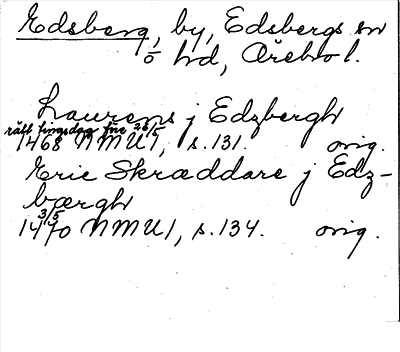 Edsberg, by, Edsbergs sn
o hd, Örebro l.
Laurens j Edzbergh
rätt tingsdag före 26/5
1468 NMU 1, s. 131. orig.
Eric Skræddare j Edz-
bærgh
3/5
1470 NMU 1, s. 134. orig.